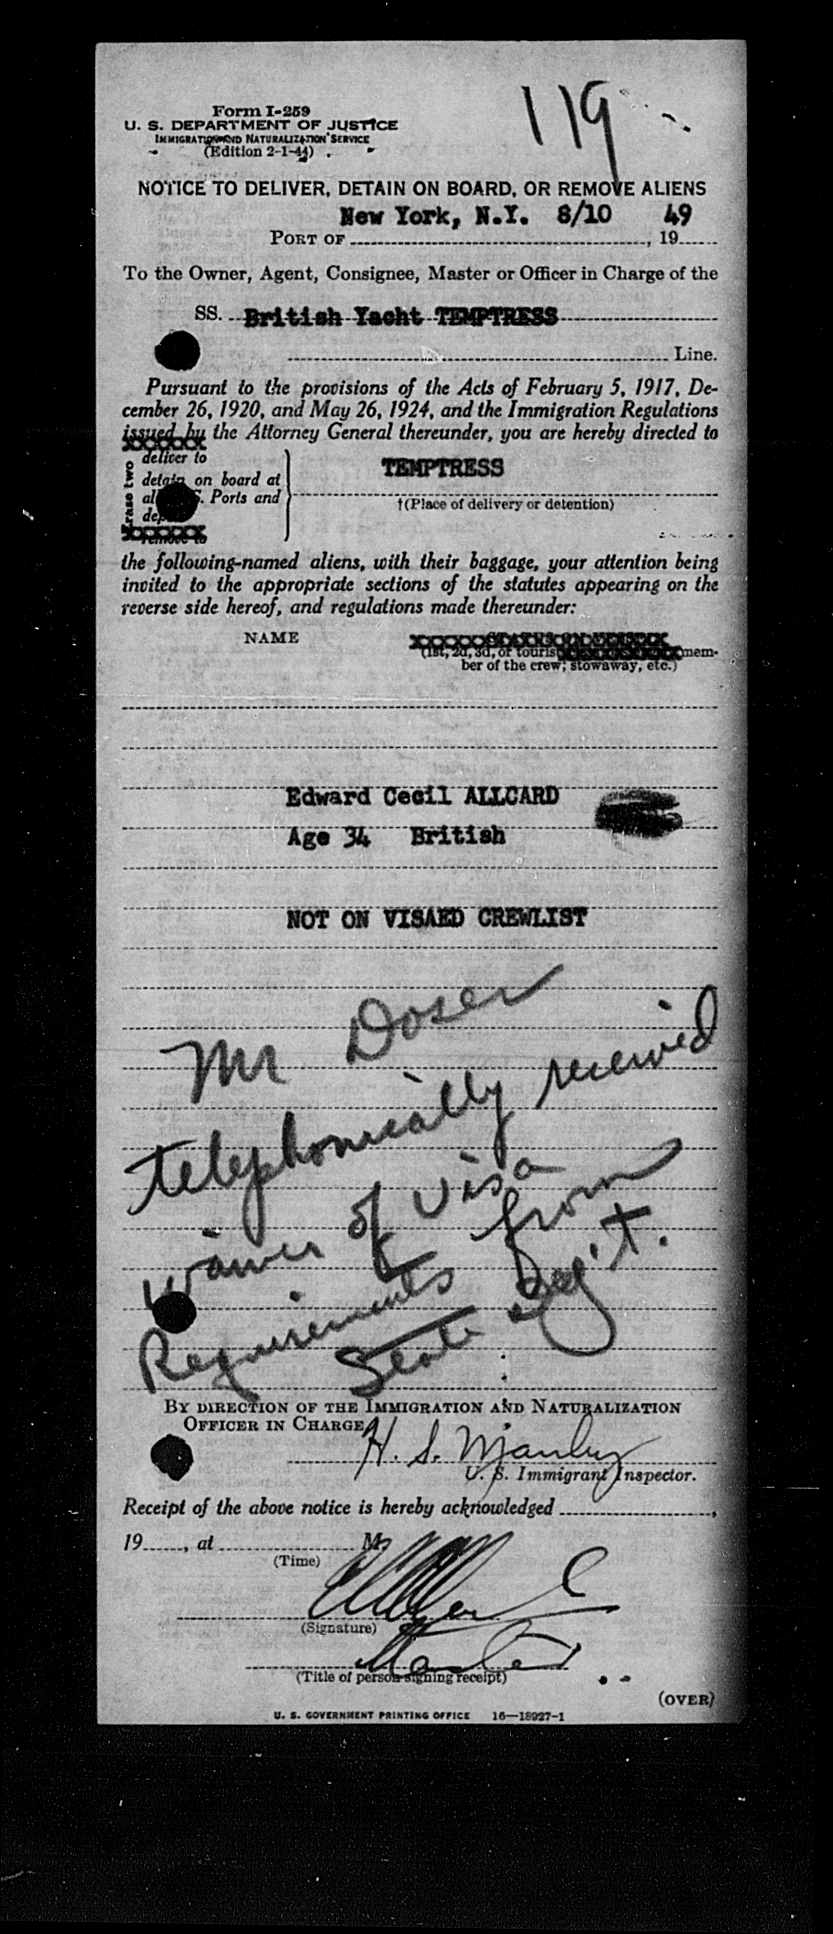 119
Form I-259
U. S. DEPARTMENT OF JUSTICE
IMMIGRATION AND NATURALIZATION SERVICE
(Edition 2-1-44)
NOTICE TO DELIVER, DETAIN ON BOARD, OR REMOVE ALIENS
New York, N.Y. 8/10 49
PORT OF , 19
To the Owner, Agent, Consignee, Master or Officer in Charge of the
SS. British Yacht TEMPTRESS
Line.
Pursuant to the provisions of the Acts of February 5, 1917, De-
cember 26, 1920, and May 26, 1924, and the Immigration Regulations
issued by the Attorney General thereunder, you are hereby directed to
deliver to
detain on board at TEMPTRESS
Ports and
†(Place of delivery or detention)
remove to
the following-named aliens, with their baggage, your attention being
invited to the appropriate sections of the statutes appearing on the
reverse side hereof, and regulations made thereunder:
NAME
(1st, 2d, 3d, or tourist mem-
ber of the crew; stowaway, etc.)
Edward Cecil ALLCARD
Age 34 British
NOT ON VISAED CREWLIST
Mr Doser
telephonically received
waiver of visa
Requirements from
State Dep't.
BY DIRECTION OF THE IMMIGRATION AND NATURALIZATION
OFFICER IN CHARGE
H. S. Manley
U. S. Immigrant Inspector.
Receipt of the above notice is hereby acknowledged ,
19 , at M.
(Time)
(Signature)
Master
(Title of person signing receipt)
(OVER)
U. S. GOVERNMENT PRINTING OFFICE 16—18927-1